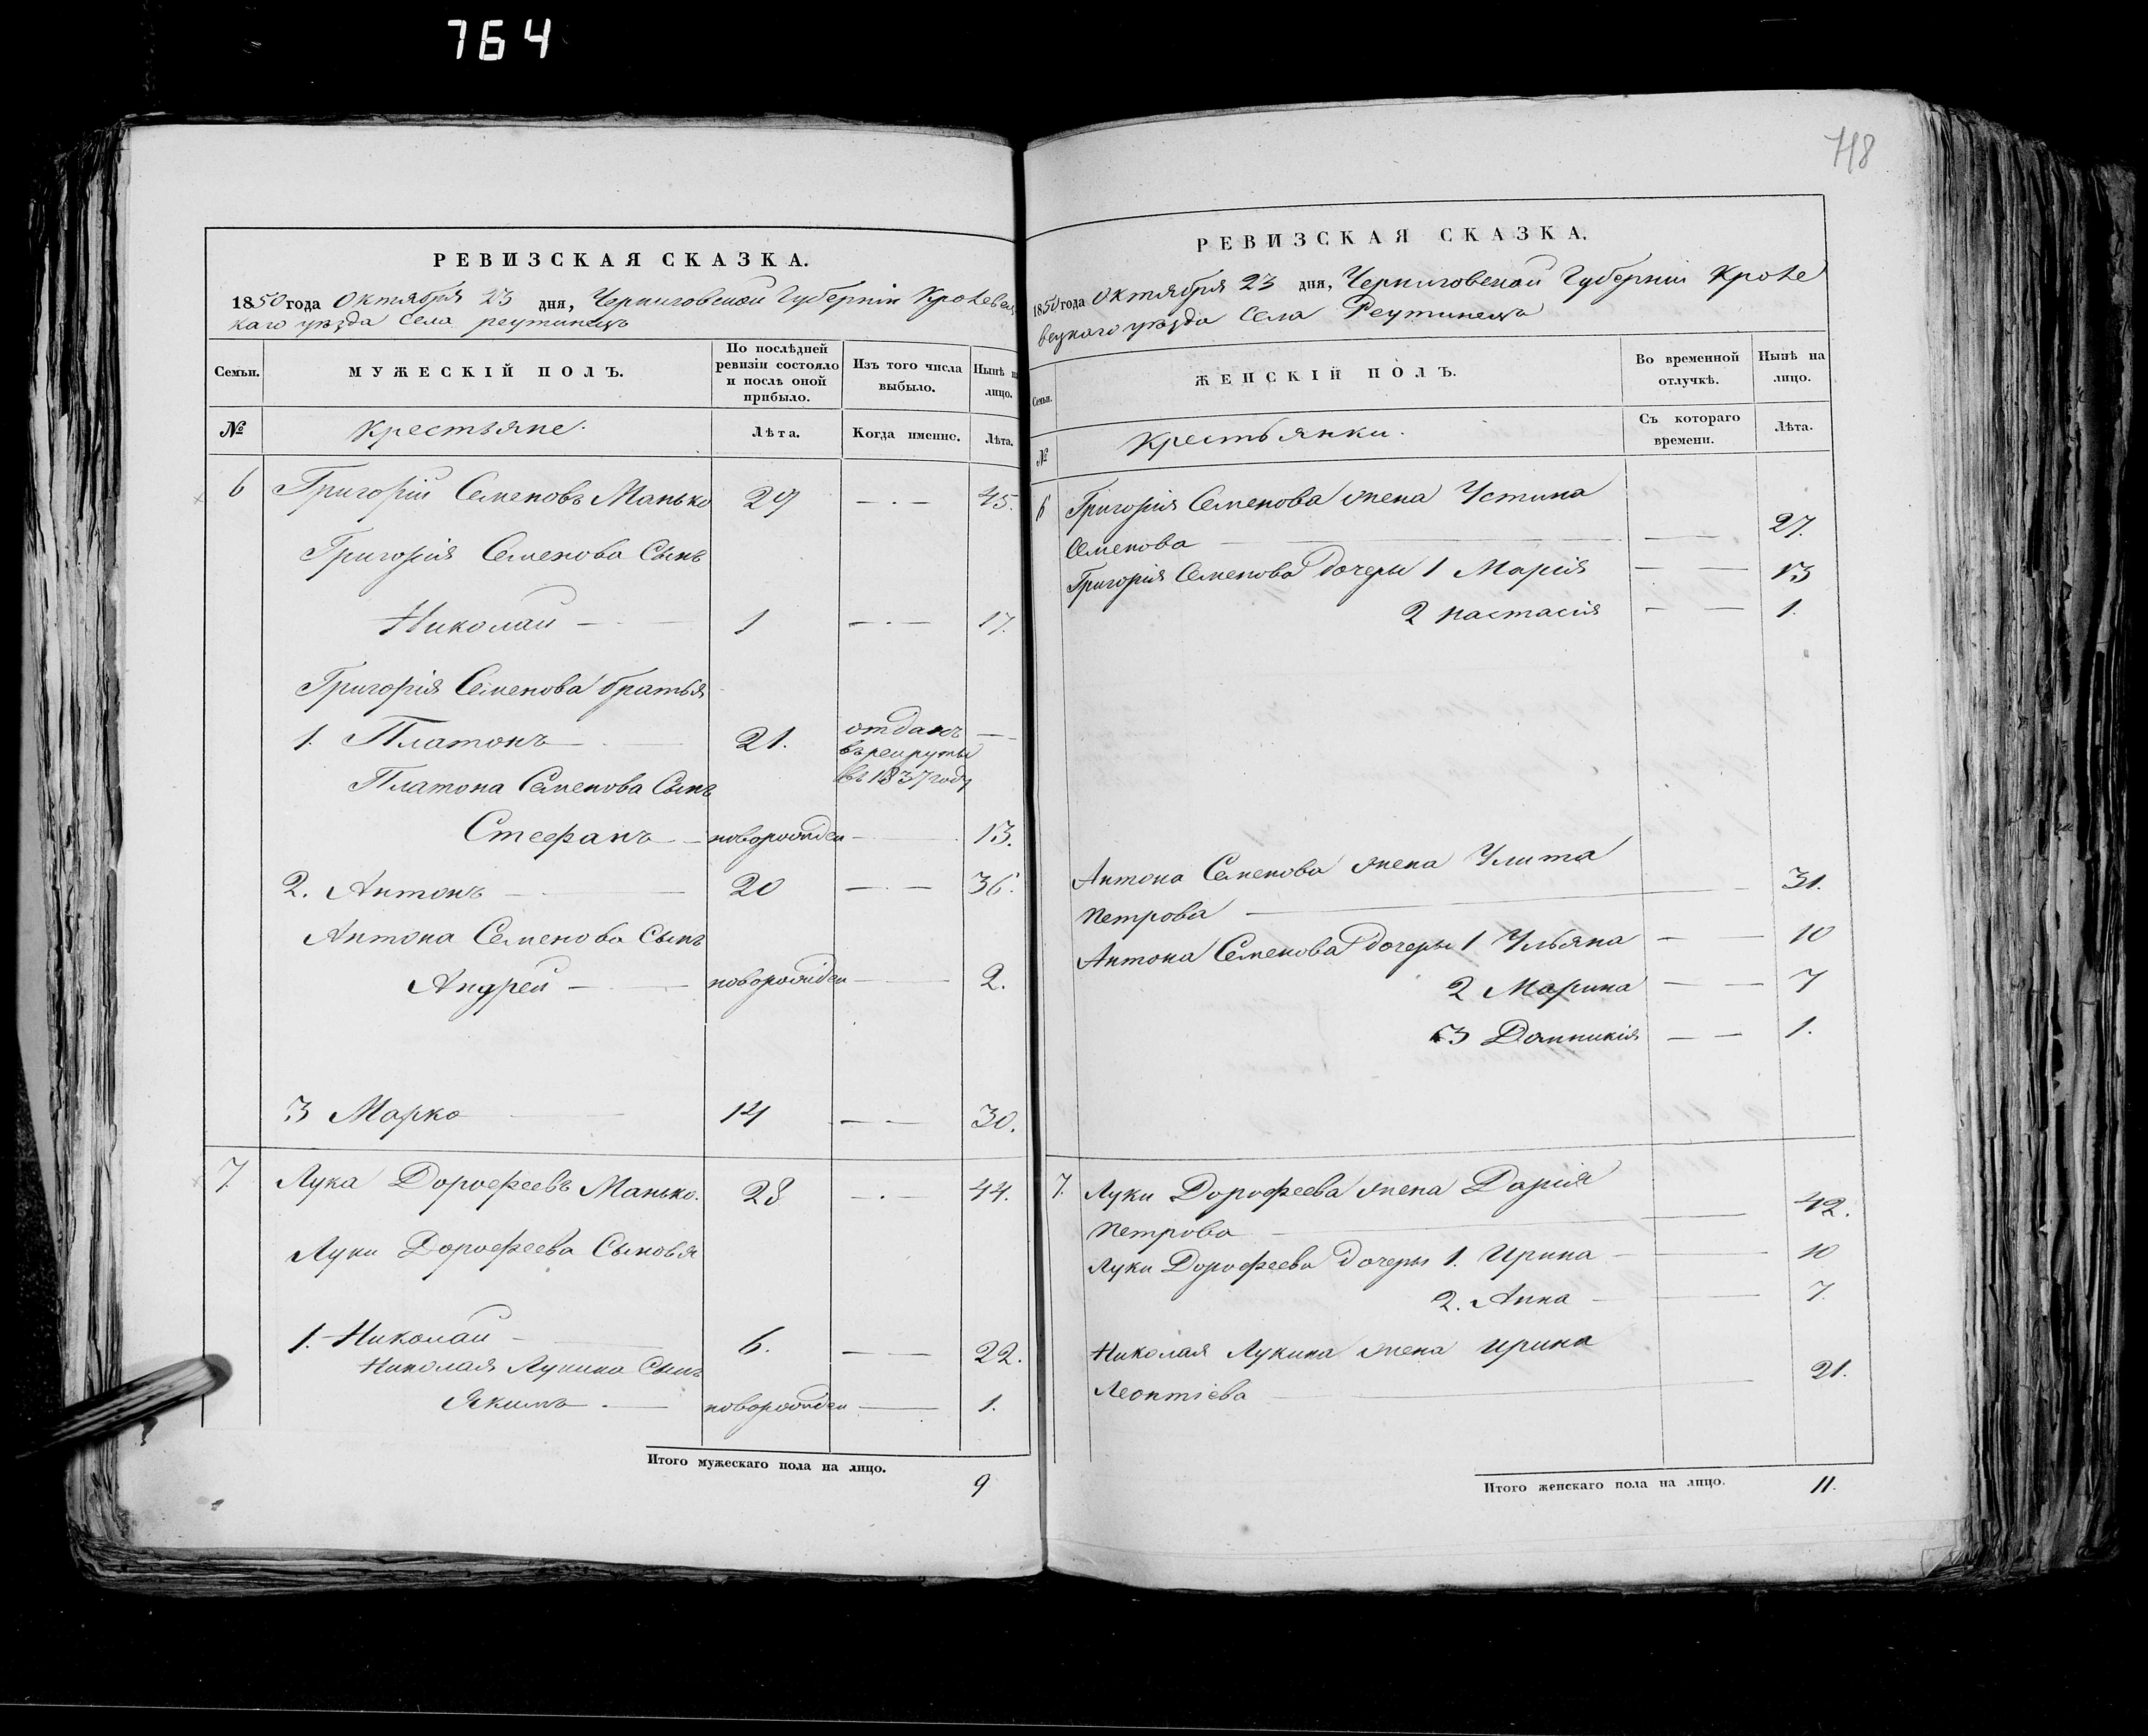 764
РЕВИЗСКАЯ СКАЗКА.
1850 года Октября 23 дня, Черниговской Губерніи Кролевец
каго уѣзда Села реутинецъ
Семьи.
МУЖЕСКІЙ ПОЛЪ.
По послѣдней ревизіи состояло и послѣ оной прибыло.
Изъ того числа выбыло.
Нынѣ на лицо.
№
Крестьяне.
Лѣта.
Когда именно.
Лѣта.
6 Григорій Семеновъ Манько 29 — 45.
Григорія Семенова Сынъ
Николай — 1 — 17.
Григорія Семенова братья
1. Платонъ — 21. отданъ —
въ рекруты
въ 1837 году
Платона Семенова Сынъ
Стефанъ — новорожден — 13.
2. Антонъ — 20 — 36.
Антона Семенова Сынъ
Андрей — новорожден — 2.
3 Марко — 14 — 30.
7. Лука Дорофеевъ Манько. 28 — 44.
Луки Дорофеева Сыновья
1. Николай — 6. — 22.
Николая Лукина Сынъ
Якимъ — новорожден — 1.
Итого мужескаго пола на лицо.
9
748
РЕВИЗСКАЯ СКАЗКА.
1850 года Октября 23 дня, Черниговской Губерніи Кроле
вецкаго уѣзда Села Реутинецъ
Семьи.
ЖЕНСКІЙ ПОЛЪ.
Во временной отлучкѣ.
Нынѣ на лицо.
№
Крестьянки.
Съ котораго времени.
Лѣта.
6 Григорія Семенова жена Устина
Семенова — 27.
Григорія Семенова дочери 1 Марія — 13
2 настасія — 1.
Антона Семенова жена Улита
Петрова — 31.
Антона Семенова дочери 1. Ульяна — 10
2 Марина — 7
3 Домникія — 1.
7. Луки Дорофеева жена Дарія
Петрова — 42.
Луки Дорофеева дочери 1. Ирина — 10
2. Анна — 7.
Николая Лукина жена ирина
Леонтіева — 21.
Итого женскаго пола на лицо.
11.